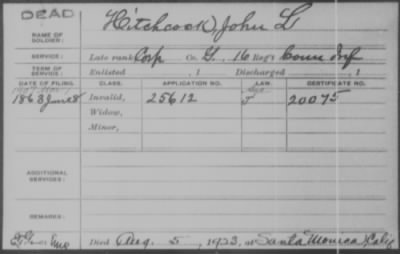 DEAD
Hitchcock, John L
NAME OF SOLDIER:
SERVICE: Late rank Corp Co. G, 16 Reg't Conn Inf
TERM OF SERVICE: Enlisted , 1 Discharged , 1
DATE OF FILING. CLASS. APPLICATION NO. LAW. CERTIFICATE NO.
1863 June 8 Invalid, 25612 20075
Widow,
Minor,
ADDITIONAL SERVICES:
REMARKS:
Died Aug. 5, 1923, at Santa Monica Calif